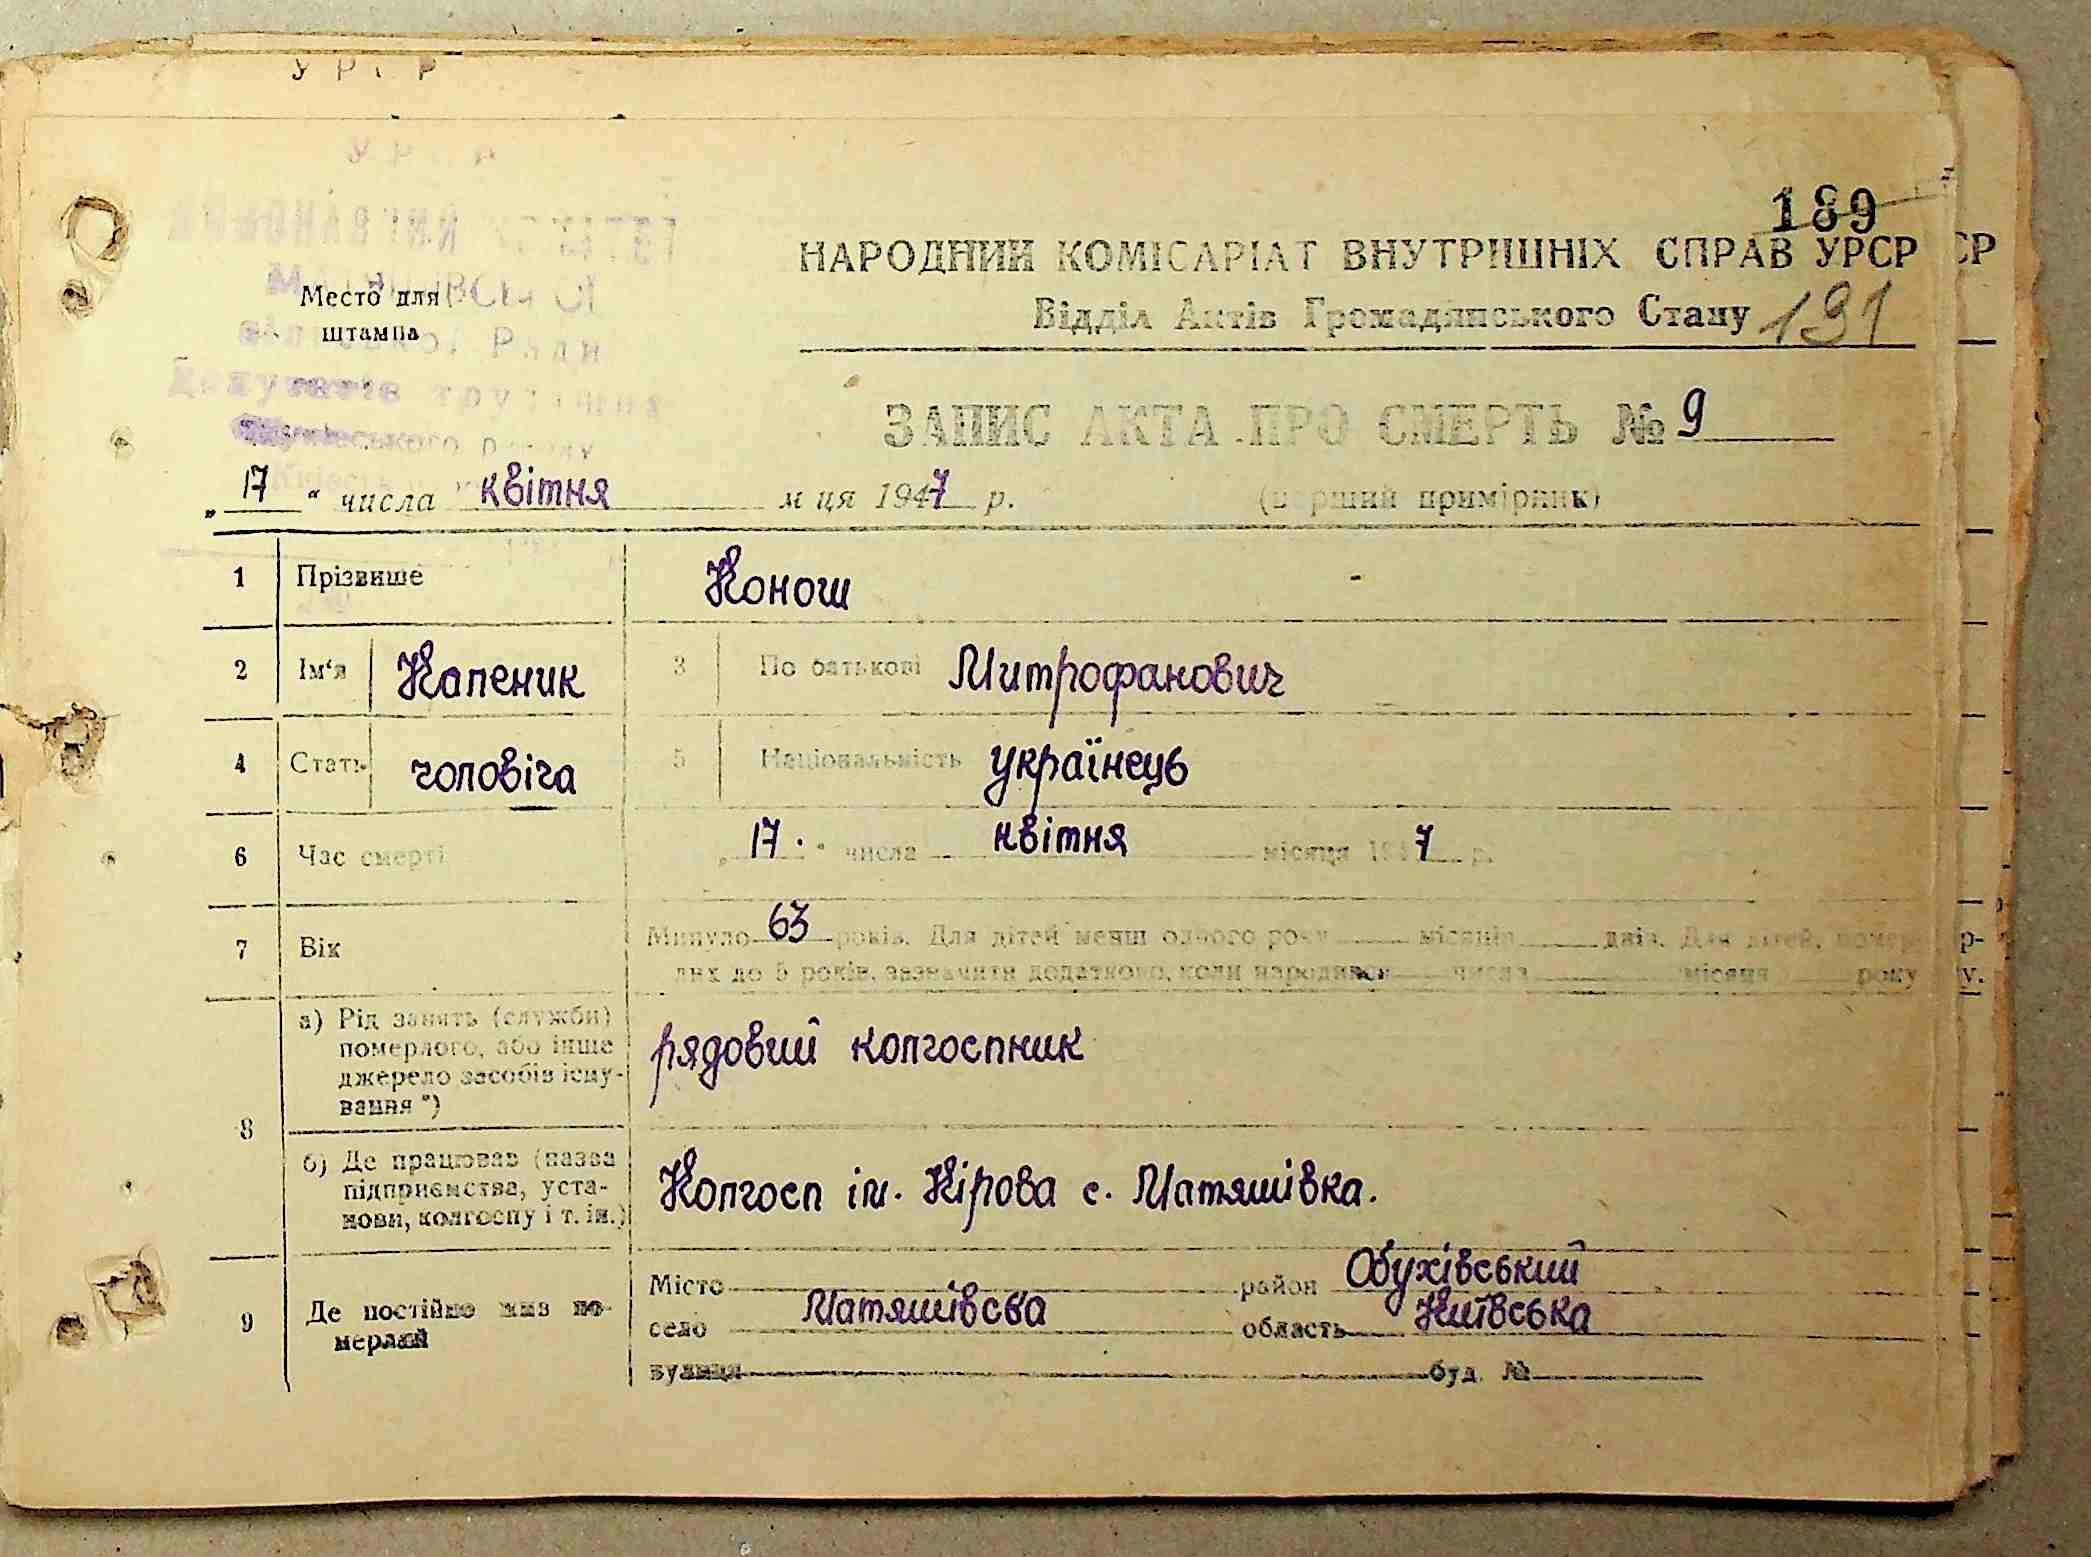 У Р С Р
189
НАРОДНИЙ КОМІСАРІАТ ВНУТРІШНІХ СПРАВ УРСР СР
Место для
штампа
Відділ Актів Громадянського Стану 191
сільської Ради
Депутатів трудящих
ЗАПИС АКТА ПРО СМЕРТЬ № 9
„ 17 “ числа квітня м ця 1947 р. (перший примірник)
1 Прізвище Конош
2 Ім'я Капеник 3 По батькові Митрофанович
4 Стать чоловіча 5 Національність українець
6 Час смерті „ 17. “ числа квітня місяця 1947 р.
7 Вік Минуло 63 років. Для дітей менш одного року місяців днів. Для дітей, помер р-
лих до 5 років, зазначити додатково, коли народився числа місяця року у.
8 а) Рід занять (служби)
померлого, або інше
джерело засобів існу-
вання *) рядовий колгоспник
б) Де працював (назва
підприємства, уста-
нови, колгоспу і т. ін.) Колгосп ім. Кірова с. Матяшівка.
9 Де постійно жив по-
мерлий
Місто район Обухівський
село Матяшівска область Київська
вулиця буд. №